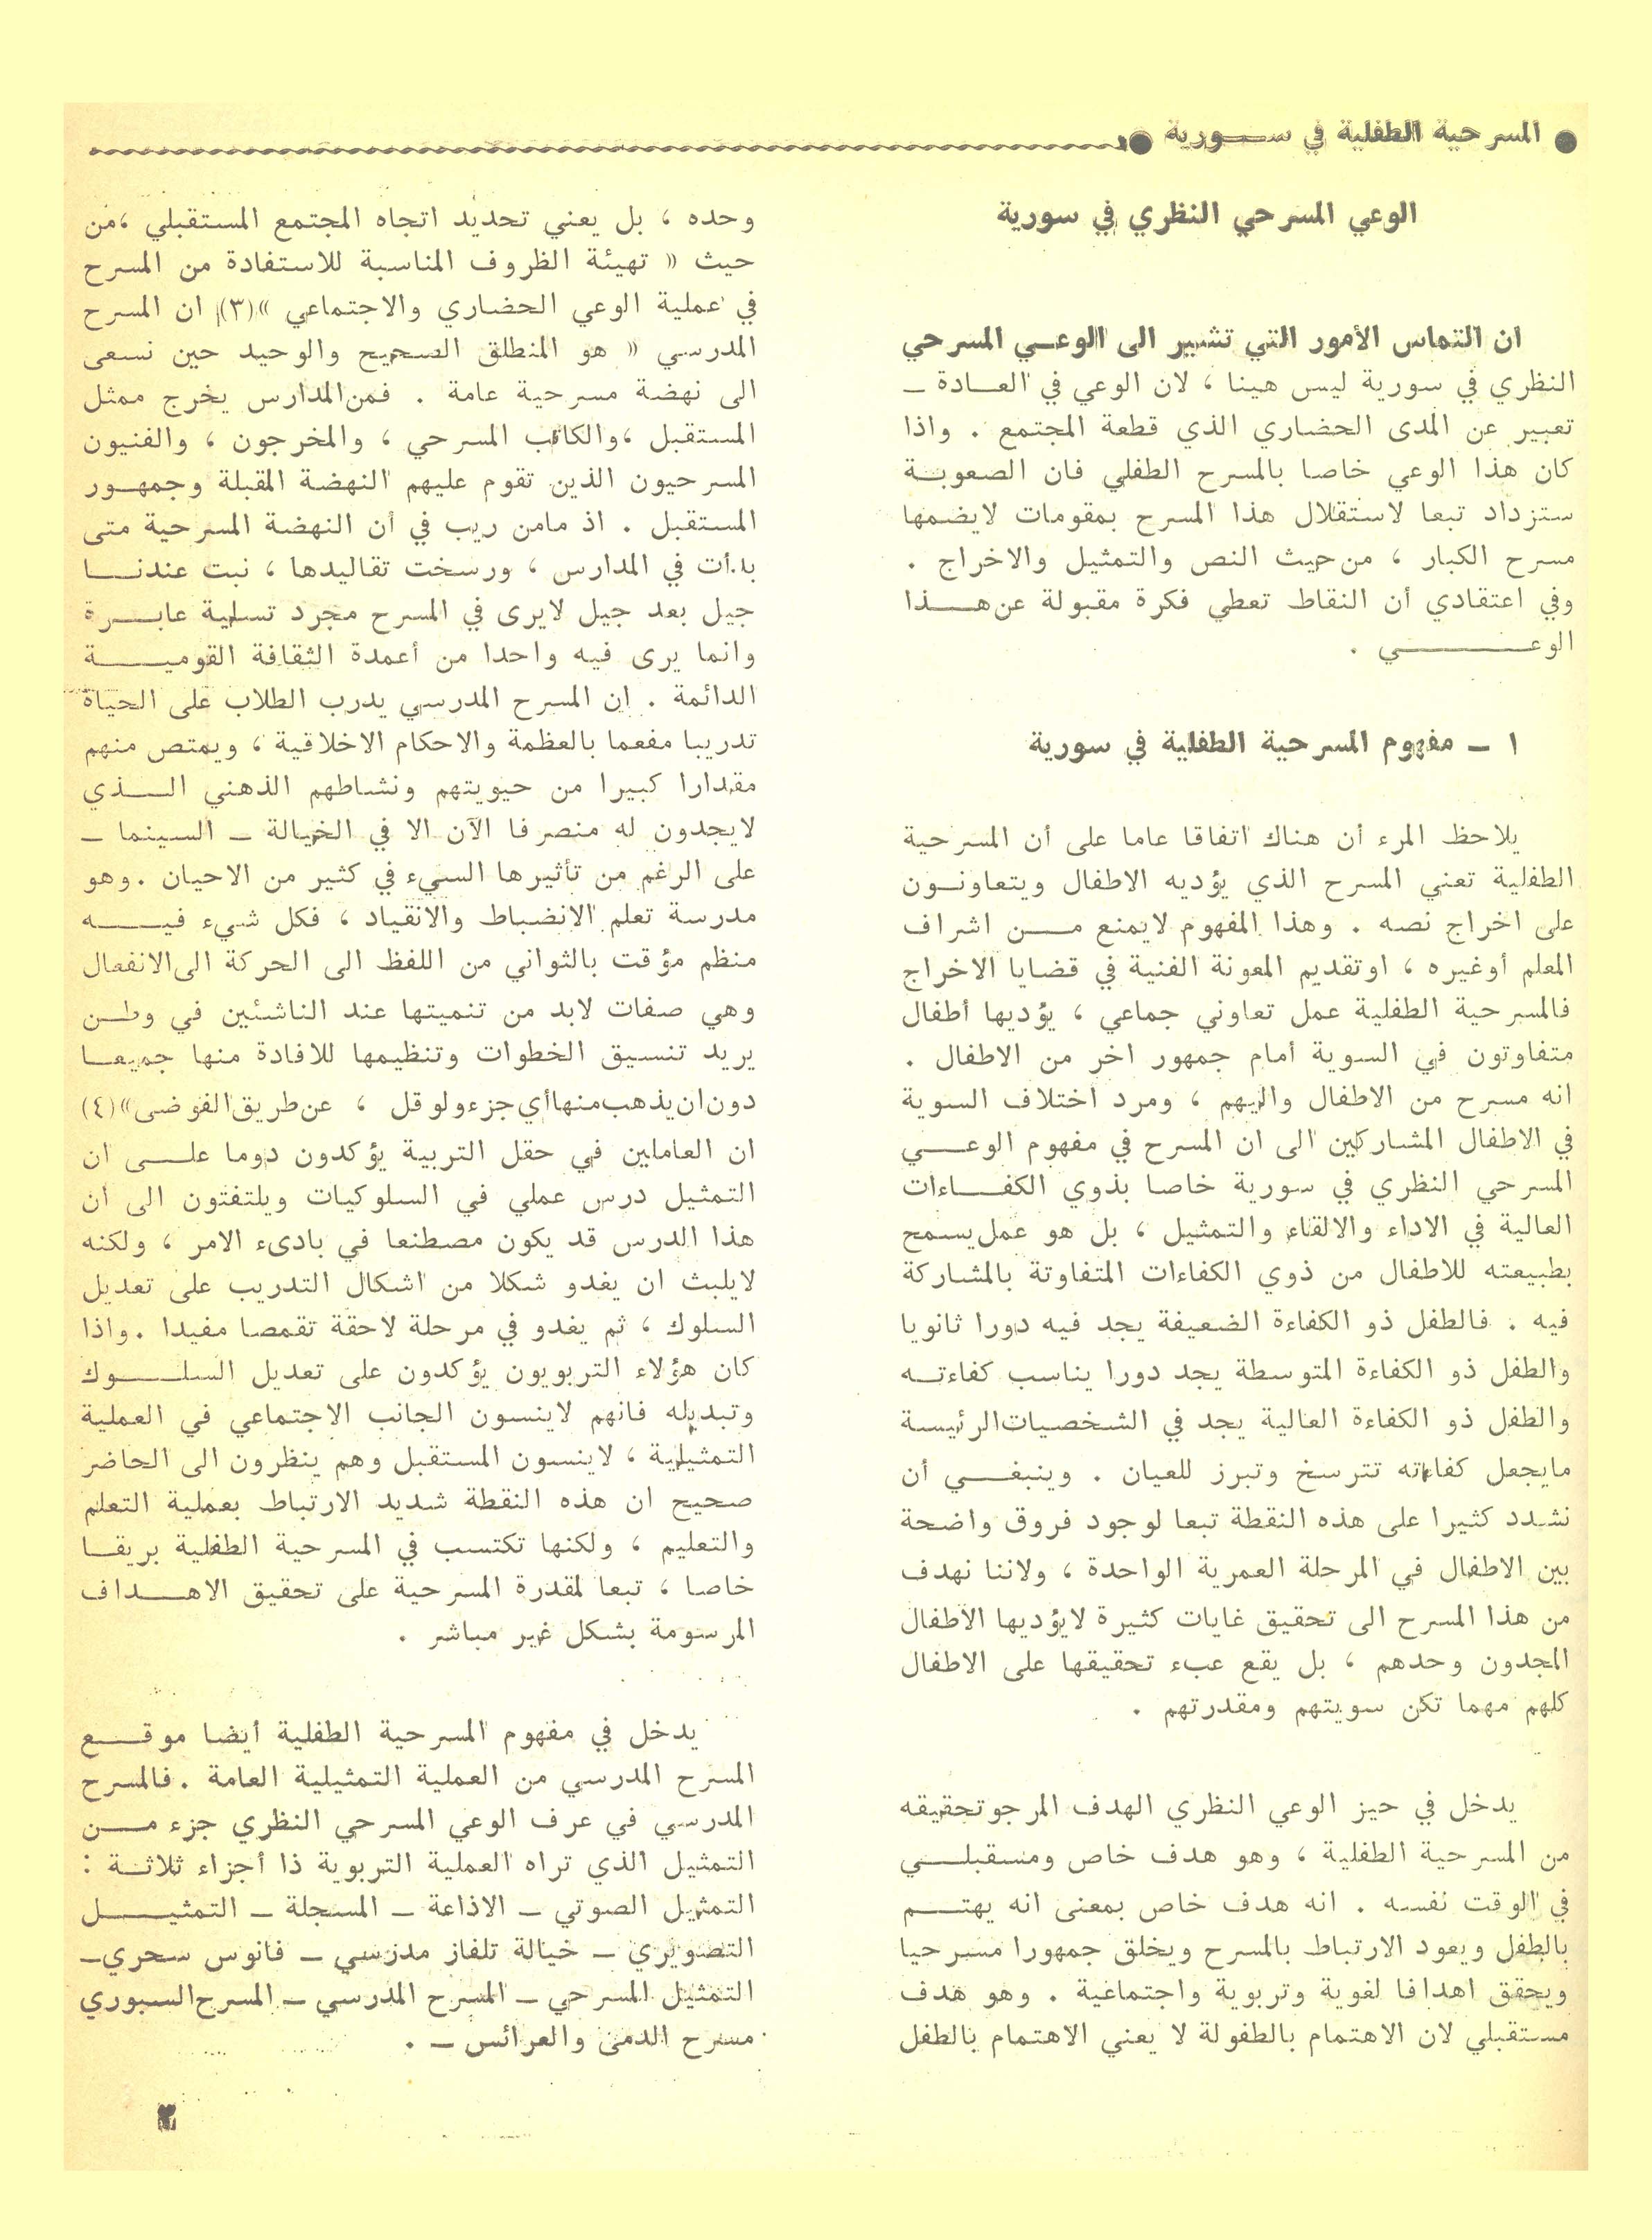 ● المسرحية الطفلية في ســـورية ●
الوعي المسرحي النظري في سورية
ان التماس الأمور التي تشير الى الوعــي المسرحي
النظري في سورية ليس هينا ، لان الوعي في العــادة ــ
تعبير عن المدى الحضاري الذي قطعة المجتمع . واذا
كان هذا الوعي خاصا بالمسرح الطفلي فان الصعوبــة
ستزداد تبعا لاستقلال هذا المسرح بمقومات لايضمها
مسرح الكبار ، من حيث النص والتمثيل والاخراج .
وفي اعتقادي أن النقاط تعطي فكرة مقبولة عن هــذا
الوعـــــي .
١ ــ مفهوم المسرحية الطفلية في سورية
يلاحظ المرء أن هناك اتفاقا عاما على أن المسرحية
الطفلية تعني المسرح الذي يؤديه الاطفال ويتعاونــون
على اخراج نصه . وهذا المفهوم لايمنع مــن اشراف
المعلم أوغيره ، اوتقديم المعونة الفنية في قضايا الاخراج
فالمسرحية الطفلية عمل تعاوني جماعي ، يؤديها أطفال
متفاوتون في السوية أمام جمهور اخر من الاطفال .
انه مسرح من الاطفال واليهم ، ومرد اختلاف السوية
في الاطفال المشاركين الى ان المسرح في مفهوم الوعــي
المسرحي النظري في سورية خاصا بذوي الكفــاءات
العالية في الاداء والالقاء والتمثيل ، بل هو عمل يسمح
بطبيعته للاطفال من ذوي الكفاءات المتفاوتة بالمشاركة
فيه . فالطفل ذو الكفاءة الضعيفة يجد فيه دورا ثانويا
والطفل ذو الكفاءة المتوسطة يجد دورا يناسب كفاءتــه
والطفل ذو الكفاءة العالية يجد في الشخصيات الرئيسة
مايجعل كفاءته تترسخ وتبرز للعيان . وينبغــي أن
نشدد كثيرا على هذه النقطة تبعا لوجود فروق واضحة
بين الاطفال في المرحلة العمرية الواحدة ، ولاننا نهدف
من هذا المسرح الى تحقيق غايات كثيرة لايؤديها الأطفال
المجدون وحدهم ، بل يقع عبء تحقيقها على الاطفال
كلهم مهما تكن سويتهم ومقدرتهم .
يدخل في حيز الوعي النظري الهدف المرجو تحقيقه
من المسرحية الطفلية ، وهو هدف خاص ومسقبلــي
في الوقت نفسه . انه هدف خاص بمعنى انه يهتــم
بالطفل ويعود الارتباط بالمسرح ويخلق جمهورا مسرحيا
ويحقق اهدافا لغوية وتربوية واجتماعية . وهو هدف
مستقبلي لان الاهتمام بالطفولة لا يعني الاهتمام بالطفل
وحده ، بل يعني تحديد اتجاه المجتمع المستقبلي ،من
حيث « تهيئة الظروف المناسبة للاستفادة من المسرح
في عملية الوعي الحضاري والاجتماعي »(٣) ان المسرح
المدرسي « هو المنطلق الصحيح والوحيد حين نسعى
الى نهضة مسرحية عامة . فمن المدارس يخرج ممثل
المستقبل ،والكاتب المسرحي ، والمخرجون ، والفنيون
المسرحيون الذين تقوم عليهم النهضة المقبلة وجمهــور
المستقبل . اذ مامن ريب في أن النهضة المسرحية متى
بدأت في المدارس ، ورسخت تقاليدها ، نبت عندنــا
جيل بعد جيل لايرى في المسرح مجرد تسلية عابــرة
وانما يرى فيه واحدا من أعمدة الثقافة القوميــة
الدائمة . ان المسرح المدرسي يدرب الطلاب على الحياة
تدريبا مفعما بالعظمة والاحكام الاخلاقية ، ويمتص منهم
مقدارا كبيرا من حيويتهم ونشاطهم الذهني الــذي
لايجدون له منصرفا الآن الا في الخيالة ــ السينما ــ
على الرغم من تأثيرها السيء في كثير من الاحيان . وهو
مدرسة تعلم الانضباط والانقياد ، فكل شيء فيــه
منظم مؤقت بالثواني من اللفظ الى الحركة الى الانفعال
وهي صفات لابد من تنميتها عند الناشئين في وطــن
يريد تنسيق الخطوات وتنظيمها للافادة منها جميعــا
دون ان يذهب منها أي جزء ولو قل ، عن طريق الفوضى »(٤)
ان العاملين في حقل التربية يؤكدون دوما علــى ان
التمثيل درس عملي في السلوكيات ويلتفتون الى أن
هذا الدرس قد يكون مصطنعا في بادىء الامر ، ولكنه
لايلبث ان يغدو شكلا من اشكال التدريب على تعديل
السلوك ، ثم يغدو في مرحلة لاحقة تقمصا مفيدا . واذا
كان هؤلاء التربويون يؤكدون على تعديل السلــوك
وتبديله فانهم لاينسون الجانب الاجتماعي في العملية
التمثيلية ، لاينسون المستقبل وهم ينظرون الى الحاضر
صحيح ان هذه النقطة شديد الارتباط بعملية التعلم
والتعليم ، ولكنها تكتسب في المسرحية الطفلية بريقــا
خاصا ، تبعا لمقدرة المسرحية على تحقيق الاهــداف
المرسومة بشكل غير مباشر .
يدخل في مفهوم المسرحية الطفلية أيضا موقــع
المسرح المدرسي من العملية التمثيلية العامة . فالمسرح
المدرسي في عرف الوعي المسرحي النظري جزء مــن
التمثيل الذي تراه العملية التربوية ذا أجزاء ثلاثــة :
التمثيل الصوتي ــ الاذاعة ــ المسجلة ــ التمثيــل
التصويري ــ خيالة تلفاز مدرسي ــ فانوس سحري ــ
التمثيل المسرحي ــ المسرح المدرسي ــ المسرح السبوري
مسرح الدمى والعرائس ــ .